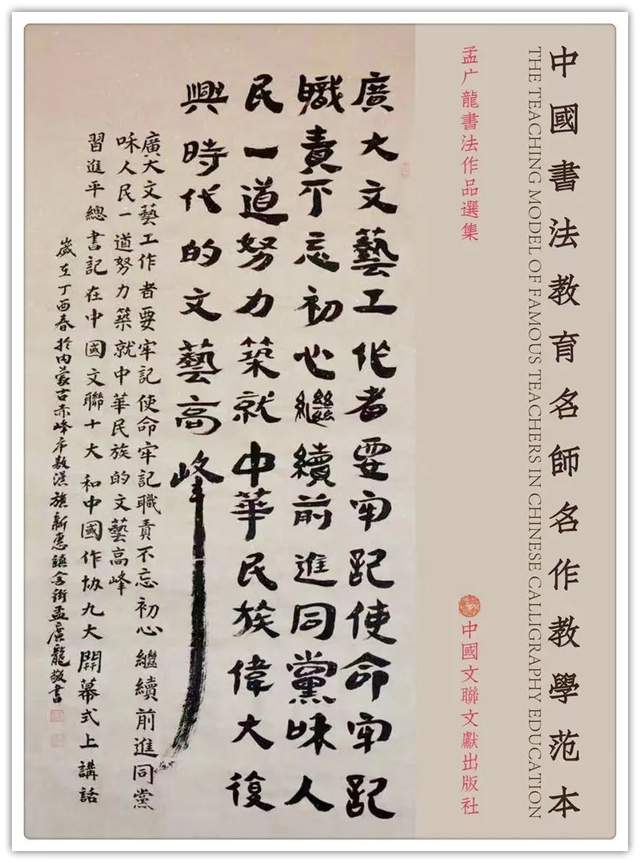 中國書法教育名師名作教學范本
THE TEACHING MODEL OF FAMOUS TEACHERS IN CHINESE CALLIGRAPHY EDUCATION
孟广龍書法作品選集
中國文聯文獻出版社
廣大文藝工作者要牢記使命牢記
職責不忘初心繼續前進同黨咊人
民一道努力築就中華民族偉大復
興時代的文藝高峰
廣大文藝工作者要牢記使命牢記職責不忘初心繼續前進同黨
咊人民一道努力築就中華民族的文藝高峰
習進平總書記在中國文聯十大和中國作協九大開幕式上講話
歲在丁酉春於内蒙古赤峰市敖漢旗新惠鎮街孟廣龍敬書